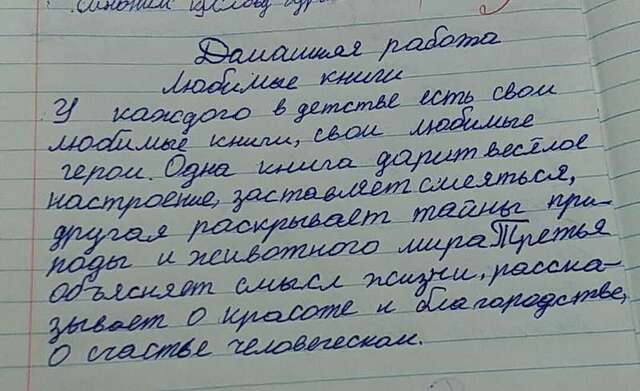 Домашняя работа
Любимые книги
У каждого в детстве есть свои
любимые книги, свои любимые
герои. Одна книга дарит весёлое
настроение, заставляет смеяться,
другая раскрывает тайны при-
роды и животного мира Третья
объясняет смысл жизни, расска-
зывает о красоте и благородстве,
о счастье человеческом.